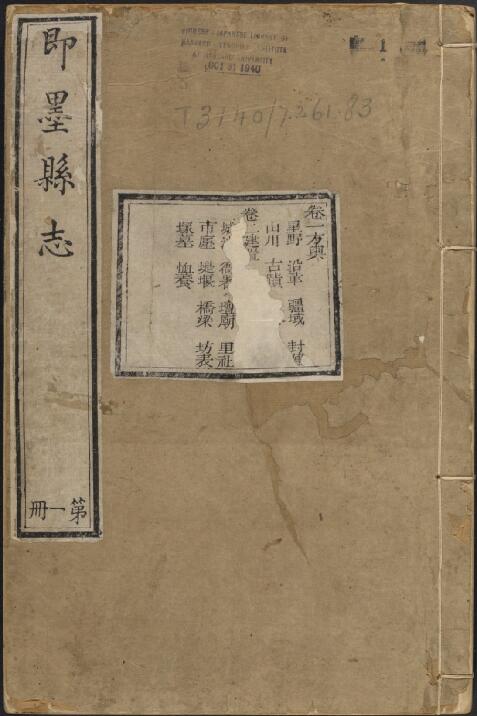 即墨縣志
第一冊
CHINESE-JAPANESE LIBRARY OF
HARVARD-YENCHING INSTITUTE
AT HARVARD UNIVERSITY
OCT 31 1940
T 3140/7261.83
卷一方輿
星野 沿革 疆域 封建
山川 古蹟
卷二建置
城池 衙署 壇廟 里社
市廛 堤堰 橋梁 坊表
塚墓 恤養